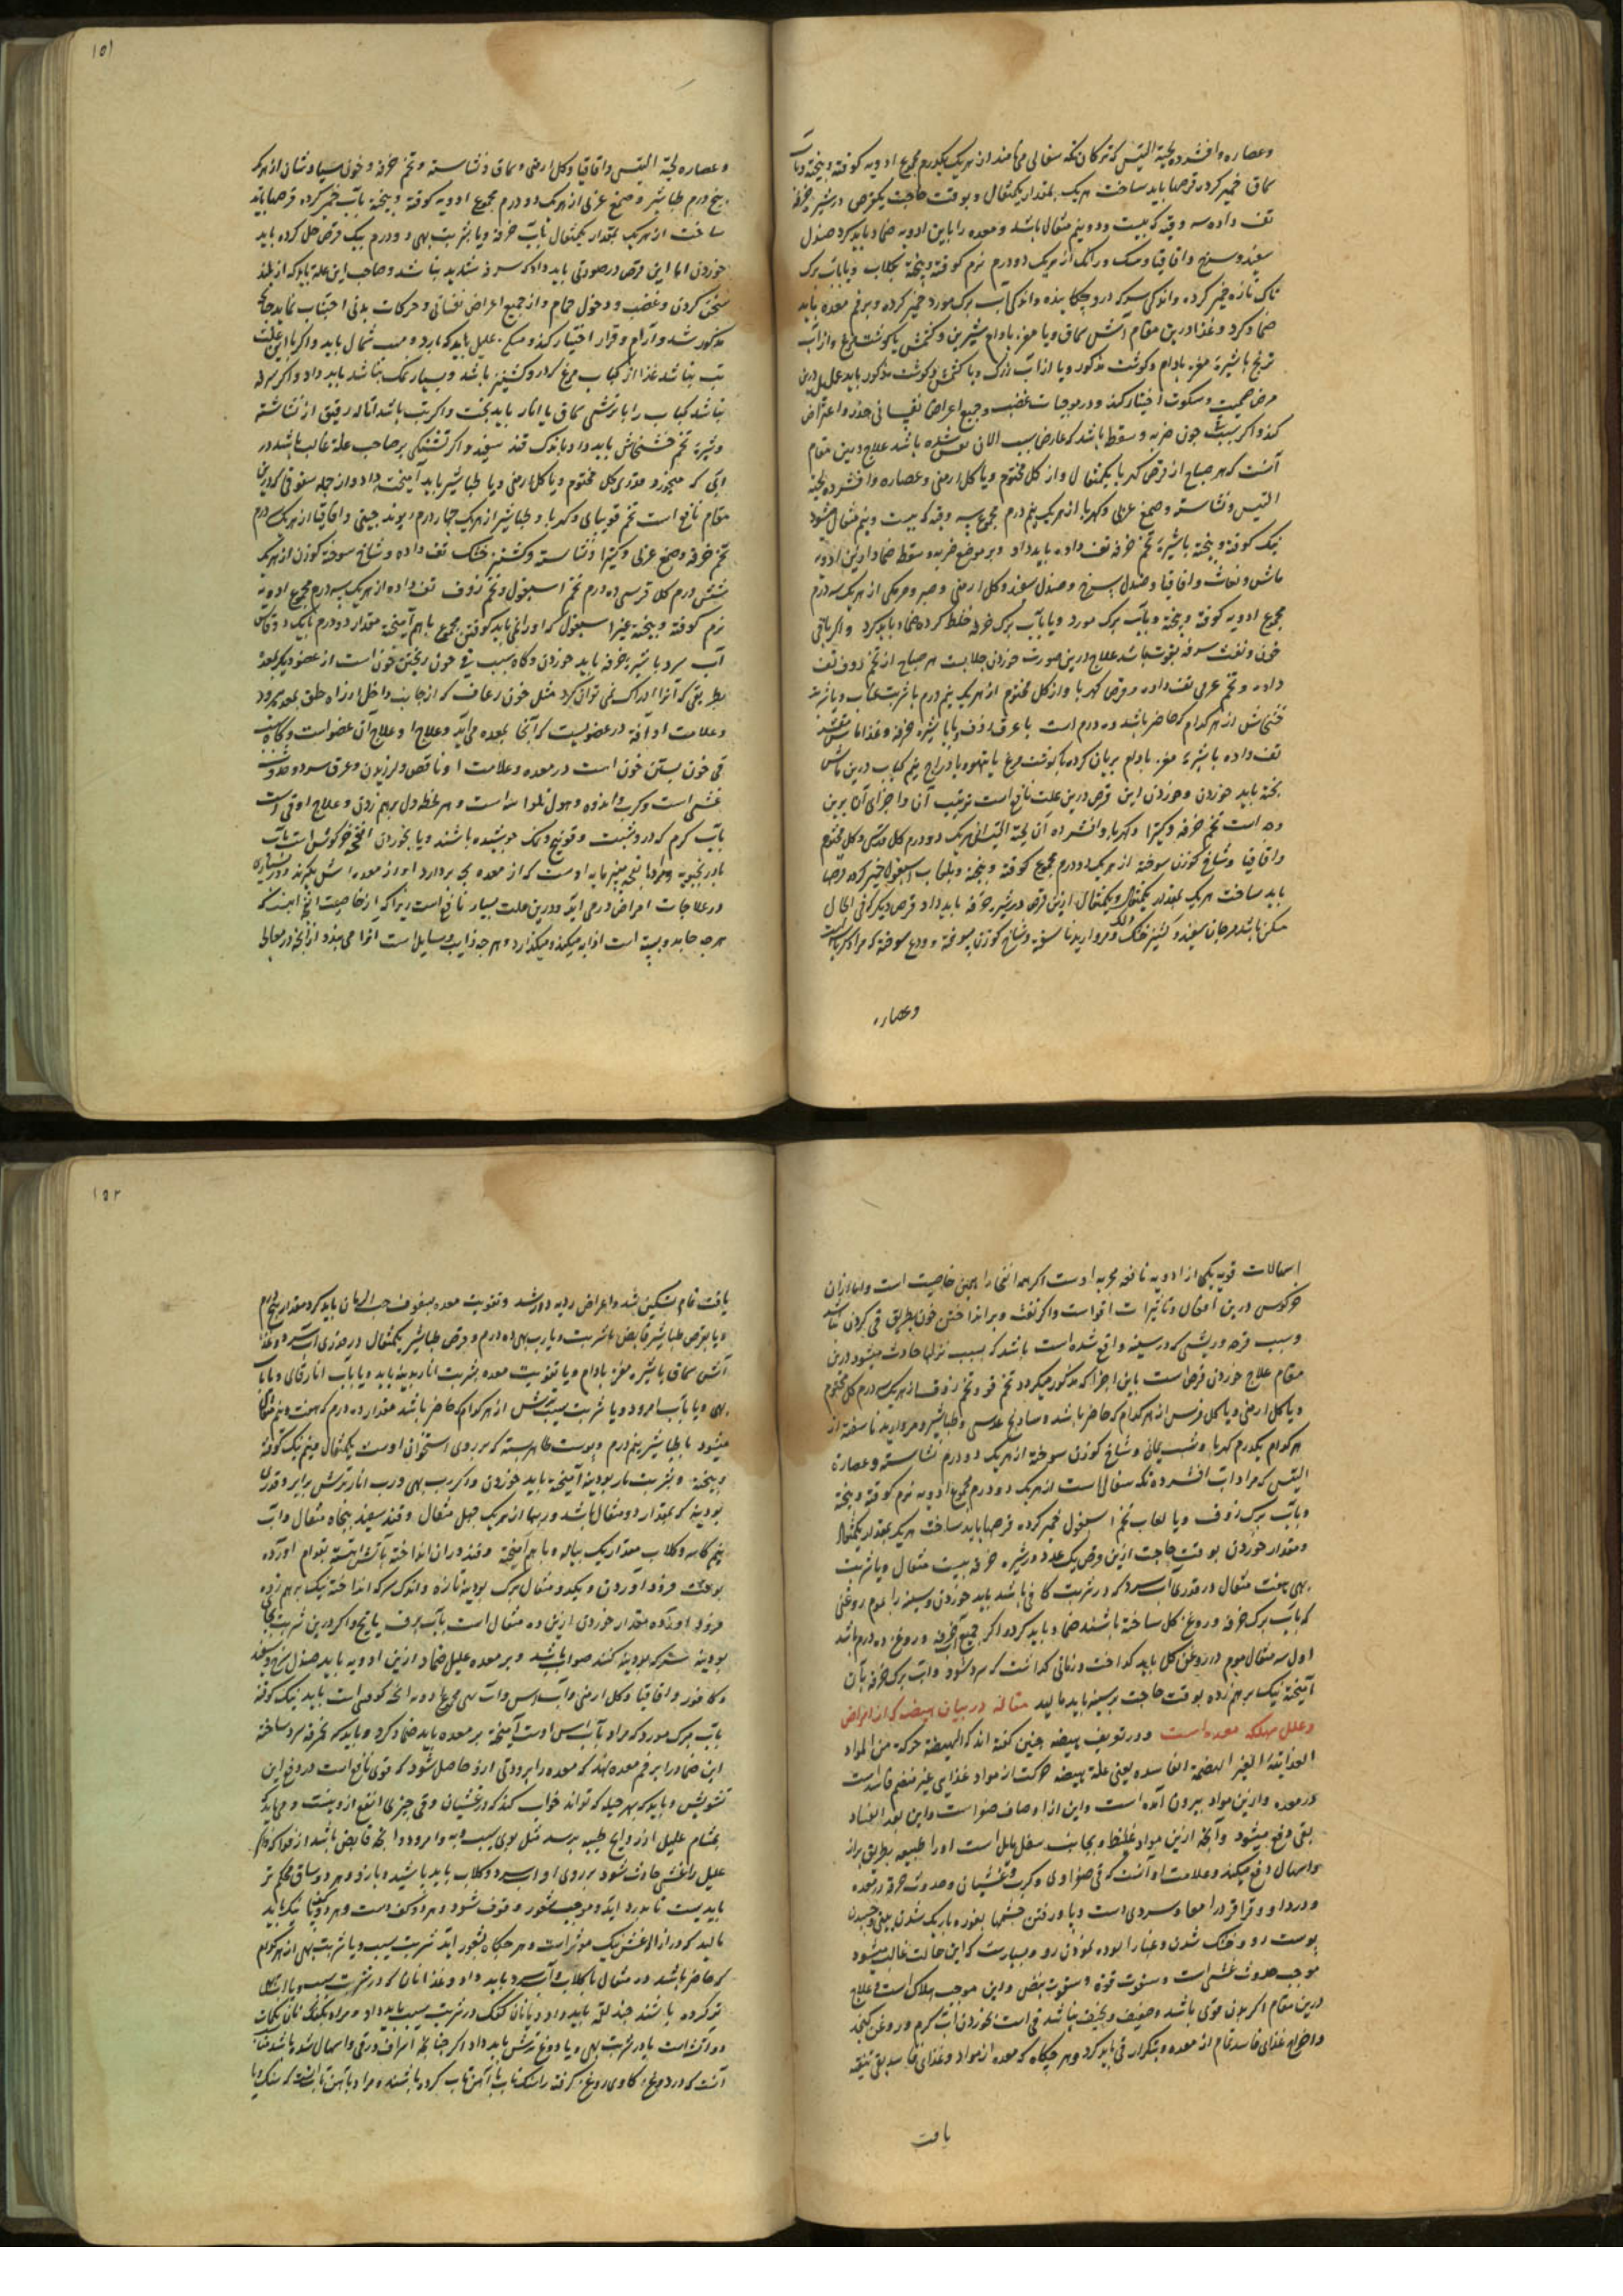 وعصاره وافشرده لحیة التیس که ترکان تکه سقالی می نامند از هر یک یکدرم مجموع ادویه کوفته و بیخته و بآب
سماق خمیر کرده قرصها باید ساخت هر یک بمقدار یکمثقال و بوقت حاجت یکقرص در شیره خرفه
تف داده سه وقیه که بیست و دو نیم مثقال باشد و معده را باین ادویه ضماد باید کرد صندل
سفید و سرخ و اقاقیا و سک و رامک از هر یک دو درم نرم کوفته و بیخته بکلاب و یا بآب برک
تاک تازه خمیر کرده و اندکی سرکه درو چکانیده و اندکی آب برک مورد خمیر کرده و بر فم معده باید
ضماد کرد و غذا درین مقام آش سماق و یا مغز بادام شیرین و کشمش با کوشت مرغ و از آب
ترنج با شیره مغز بادام و کوشت مذکور و یا از آب زرک و با کشمش و کوشت مذکور باید علیل درین
مرض حمیت و سکوت اختیار کند و در موجبات غضب و جمیع اعراض نفسانی حذر و اعتراض
کند و اکر سبب چون ضربه و سقطه باشد که عارض سبب الان شده باشد علاج درین مقام
آنست که هر صباح از قرص کهربا یکمثقال و از کل مختوم و یا کل ارمنی و عصاره و افشرده لحیة
التیس و نشاسته و صمغ عربی و کهربا از هر یک نیم درم مجموع سه وقیه که بیست و نیم مثقال میشود
نیک کوفته و بیخته با شیره تخم خرفه تف داده باید داد و بر موضع ضربه و سقطه ضماد ازین ادویه
ماش و مغاث و اقاقیا و صندل سرخ و صندل سفید و کل ارمنی و صبر و مرمکی از هر یک سه درم
مجموع ادویه کوفته و بیخته و بآب برک مورد و یا بآب برک خرفه خلط کرده ضماد باید کرد و اکر باقی
خون و نفث سرفه بقوت باشد علاج درین صورت خوردن جلابست هر صباح از تخم زوف تف
داده و تخم عربی تف داده و قرص کهربا و از کل مختوم از هر یک نیم درم با شربت عناب و یا شربت
خشخاش از هر کدام که حاضر باشد ده درم است با عرق زوف و یا با شیره خرفه و غذا ماش مقشر
تف داده با شیره مغز بادام بریان کرده با کوشت مرغ یا تیهو و یا دراج نیم کباب درین ماش
پخته باید خوردن و خوردن این قرص درین علت نافع است ترتیب آن و اجزای آن برین
وجه است تخم خرفه و کتیرا و کهربا و افشرده آن لحیة التیس از هر یک دو درم کل قبرسی و کل مختوم
و اقاقیا و شاخ کوزن سوخته از هر یک دو درم مجموع کوفته و بیخته و بلعاب اسبغول خمیر کرده قرصها
باید ساخت هر یک بمقدار یکمثقال و یکمثقال ازین قرص در شیره خرفه باید داد قرص دیکر که فی الحال
مسکن باشد مرجان سفید و کشنیز خشک و مروارید ناسفته و شاخ کوزن سوخته و ودع سوخته که مراد کربا است
وعصاره
۱۵۱
وعصاره لحیة التیس و اقاقیا و کل ارمنی و سماق و نشاسته و تخم خرفه و خون سیاوشان از هر یک
پنج درم طباشیر و صمغ عربی از هر یک دو درم مجموع ادویه کوفته و بیخته بآب خمیر کرده قرصها باید
ساخت از هر یک بمقدار یکمثقال بآب خرفه و یا بشربت بهی دو درم یک قرص حل کرده باید
خوردن اما این قرص در صورتی باید داد که سرفه شدید نباشد و صاحب این علة باید که از بلند
سخن کردن و غضب و دخول حمام و از جمیع اعراض نفسانی و حرکات بدنی اجتناب نماید چنانکه
مذکور شد و آرام و قرار اختیار کند و مسکن علیل باید که ابرد و مهب شمال باید و اکر با این علت
تب نباشد غذا از کباب مرغ که درو کشنیز باشد و بسیار نمک نباشد باید داد و اکر سرفه
نباشد کباب را با ترشی سماق یا انار باید پخت و اکر تب باشد اماله رقیق از نشاسته
و شیره تخم خشخاش باید داد با اندک قند سفید و اکر تشنکی بر صاحب علة غالب باشد در
آبی که میخورد قدری کل مختوم و یا کل ارمنی و یا طباشیر باید آمیخت و داد و از جمله سفوفی که درین
مقام نافع است تخم قوبیای و کهربا و طباشیر از هر یک چهار درم ریوند چینی و اقاقیا از هر یک درم
تخم خرفه و صمغ عربی و کتیرا و نشاسته و کشنیز خشک تف داده و شاخ سوخته کوزن از هر یک
شش درم کل قبرسی ده درم تخم اسبغول و تخم زوف تف داده از هر یک سه درم مجموع ادویه
نرم کوفته و بیخته غیر اسبغول که او را نمی باید کوفتن مجموع باهم آمیخته مقدار دو درم با یک دو قاشق
آب سرد با شیره خرفه باید خوردن و کاه سبب قی خون ریختن خون است از عضو دیکر بمعده
بطریقی که آنرا ادراک نمی توان کرد مثل خون رعاف که از جانب داخل از راه حلق بمعده میرود
و علامت او آفة در عضویست که از انجا بمعده می آید و علاج او علاج آن عضو است و کاه سبب
قی خون بستن خون است در معده و علامت او ناقص و لرزیدن و عرق سرد و حدوث
غشی است و کرب و اندوه و هول و هر لحظه دل بر هم زدن و علاج او قی است
بآب کرم که درو شبت و فوتنج و نمک جوشیده باشند و یا بخوردن انفحه خرکوش است بآب
بادرنجبویه و مراد از انفحه پنیر مایه اوست که از معده بچه بردارد او را از معده اش بکیرند و در بسیاری
در علاجات امراض در می آید و درین علت بسیار نافع است زیرا که از خاصیت انفحه اینست که
هر چه جامد و بسته است او را به میکند و میکذارد و هر چه ذایب و سایل است او را می بندد از آنجه در معالجه
اسهالات قویه یکی از ادویه نافعه مجربه اوست اکر همه انفحها را همین خاصیت است ولیا از آن
خرکوش درین افعال و تاثیرات اقوا است و اکر نفث و بر انداختن خون بطریق قی کردن نباشد
و سبب قرحه و ریشی که در سینه واقع شده است باشد که بسبب نزلها حادث میشود درین
مقام علاج خوردن قرص است باین اجزا که مذکور میکردد تخم خو و تخم زوف از هر یک سه درم کل مختوم
و یا کل ارمنی و یا کل قبرس از هر کدام که حاضر باشد و سادنج عدسی و طباشیر و مروارید ناسفته از
هر کدام یکدرم کهربا و شب یمانی و شاخ کوزن سوخته از هر یک دو درم نشاسته و عصاره
التیس که مراد آب افشرده تکه سقالی است از هر یک دو درم مجموع ادویه نرم کوفته و بیخته
و بآب برک زوف و یا لعاب تخم اسبغول خمیر کرده قرصها باید ساخت هر یک بمقدار یکمثقال
و مقدار خوردن بوقت حاجت ازین قرص یک عدد در شیره خرفه بیست مثقال و یا شربت
بهی هفت مثقال در قدری آب سرد که در شربت کافی باشد باید خوردن و سینه را بموم روغنی
که بآب برک خرفه و روغن کل ساخته باشند ضماد باید کرد و اکر جمیع آب خرفه و روغن ده درم باشد
اول سه مثقال موم در روغن کل باید کداخت و زمانی کذاشت که سرد شود و آب برک خرفه بآن
آمیخته نیک بر هم زده بوقت حاجت بر سینه باید مالید مقاله در بیان هیضه که از امراض
و علل مهلکه معده است و در تعریف هیضه چنین کفته اند که الهیضة حرکة من المواد
الغذائیة الغیر المنهضمة الفاسده یعنی علة هیضه حرکت از مواد غذایی غیر منهضم فاسد است
در معده و ازین مواد بیرون آمده است و این از اوصاف صفراست و این بعد الفساد
بقی دفع میشود و آنچه ازین مواد غلیظ و بجانب سفل مایل است او را طبیعه بطریق براز
و اسهال دفع میکند و علامت او آنست که قی صفراوی و کرب و غثیان و حدوث حرقه در معده
و درد او و قراقر در امعا و سردی دست و پا و رفتن چشمها بغور و باریک شدن بینی و چسپیدن
پوست رو و خشک شدن و غبار آلوده نمودن رو و بسیارست که این حالت غالب میشود
موجب حدوث غشی است و سقوط قوة و سقوط نبض و این موجب هلاک است و علاج
درین مقام اکر بدن قوی باشد و ضعیف و نحیف نباشد قی است بخوردن آب کرم و روغن کنجد
و اخراج غذای فاسد تمام از معده و بتکرار قی باید کرد و هر جیکاه که معده از مواد و غذای فاسد بقی تنقیه
یافت
۱۵۲
یافت تمام تسکین شد و اعراض ردیه دور شد و تقویت معده بسفوف حب الرمان باید کرد مقدار پنج درم
و یا بقرص طباشیر قابض با شربت و یا رب بهی ده درم و قرص طباشیر یکمثقال در قدری آب سرد و غذا
آش سماق با شیره مغز بادام و یا تقویت معده بشربت انار بودینه باید و یا بآب انار قای و یا بآب
بهی و یا بآب امرود و یا شربت سیب ترش از هر کدام که حاضر باشد مقدار ده درم که هفت و نیم مثقال
میشود با طباشیر نیم درم و پوست که بر روی استخوان اوست یکمثقال و نیم نیک کوفته
و بیخته و بشربت نار بودینه آمیخته باید خوردن و اکر رب بهی و رب انار ترش برابر و قدری
بودینه که بمقدار دو مثقال باشد و ربها از هر یک چهل مثقال و قند سفید پنجاه مثقال و آب
نیم کاسه و کلاب مقدار یک پیاله و باهم آمیخته و قند در آن انداخته بآتش آهسته بقوام آورده
بوقت فرود آوردن و یکد و مثقال برک بودینه تازه و اندک سرکه انداخته نیک بر هم زده
فرود آورده مقدار خوردن ازین ده مثقال است بآب برف یا یخ و اکر درین شربت بجای
بودینه شیره بودینه کنند صواب باشد و بر معده علیل ضماد ازین ادویه باید صندل سرخ و سفید
و کافور و اقاقیا و کل ارمنی و آب آس و آب بهی مجموع ادویه آنچه کوفتنی است باید نیک کوفته
بآب برک مورد که مراد بآب آس اوست آمیخته بر معده باید ضماد کرد و باید که بخرفه سرد ساخته
این ضماد را بر فم معده نهند که معده را برودتی ازو حاصل شود که قوی نافع است در دفع این
تشویش و باید که بهر حیله که تواند خواب کند که در غثیان و قی چیزی انفع ازو نیست و می باید که
بمشام علیل از روایح طیبه برسد مثل بوی سیب و به و امرود و آنچه قابض باشد از فواکه و اکر
علیل را غشی حادث شود بر روی او آب سرد و کلاب باید پاشید و بازو و هر دو ساق محکم تر
باید بست تا بدرد آید و موجب شعور و وقوف شود و هر دو کف دست و هر دو کف پا نیک باید
مالید که در ازاله غش نیک موثر است و هر جیکاه بشعور آید شربت سیب و یا شربت بهی از هر کدام
که حاضر باشد ده مثقال با کلاب و آب سرد باید داد و غذا نان که در شربت سیب و یا آب بهی
تر کرده باشند چند لقمه باید داد و یا نان کعک در شربت سیب باید داد و مراد بکعک نان بکمات
دو آتشه است یا در شربت بهی و یا دوغ ترش باید داد و اکر چنانچه اسراف در قی و اسهال شود باشد غذا
آنست که در دوغ کاوی روغن کرفته را سنک تاب یا آهن تاب کرده باشند و مراد بآهن تاب آنست که سنک و یا